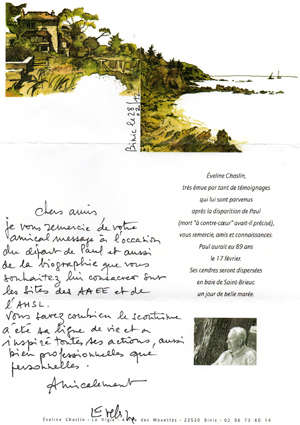 Binic le 28/
Éveline Chaslin,
très émue par tant de témoignages
qui lui sont parvenus
après la disparition de Paul
(mort "à contre-cœur" avait-il précisé),
vous remercie, amis et connaissances.
Paul aurait eu 89 ans
le 17 février.
Ses cendres seront dispersées
en baie de Saint-Brieuc
un jour de belle marée.
Chers amis
je vous remercie de votre
amical message à l'occasion
du départ de Paul et aussi
de la biographie que vous
souhaitez lui consacrer sur
les sites des AAEE et de
l'AHSL.
Vous savez combien le scoutisme
a été sa ligne de vie et a
inspiré toutes ses actions, aussi
bien professionnelles que
personnelles.
Amicalement
Éveline Chaslin - La Vigie - 4 rue des Mouettes - 22520 Binic - 02 96 73 60 54